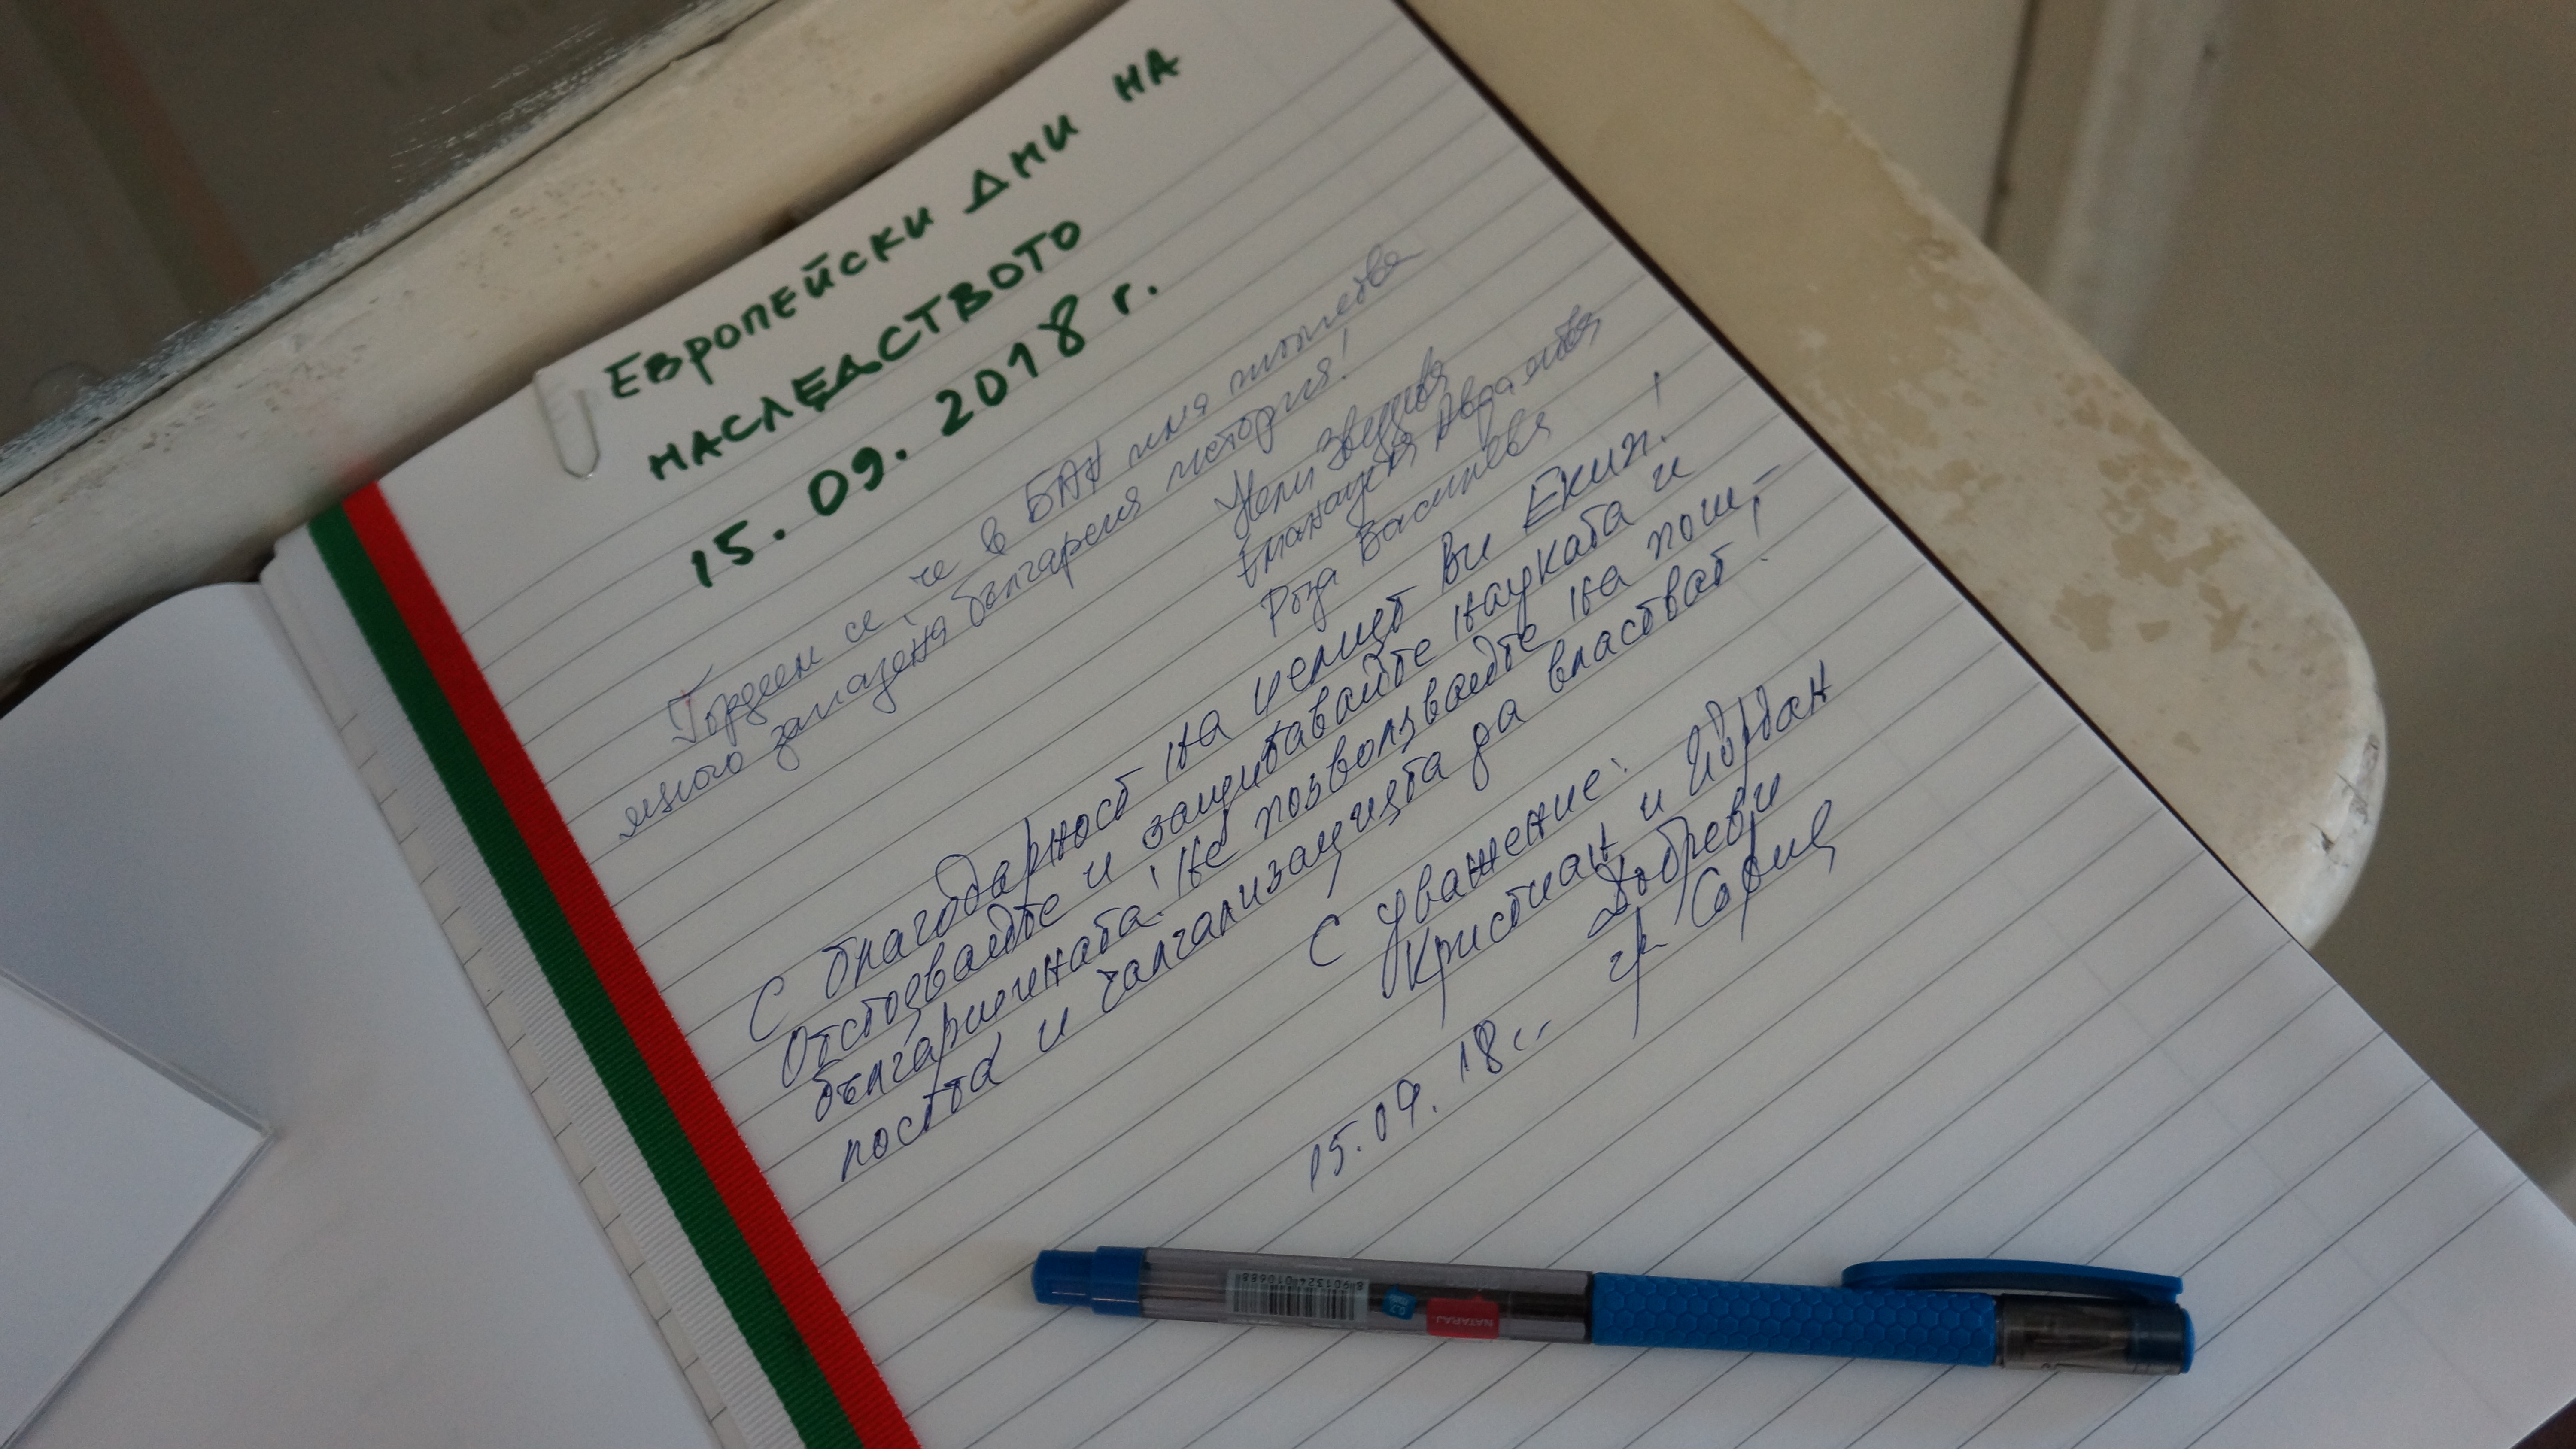 ЕВРОПЕЙСКИ ДНИ НА
НАСЛЕДСТВОТО
15. 09. 2018 г.
Гордеем се че в БАН има толкова
много запазена българска история!
Нели
Роза Василева
С благодарност на целият Ви Екип!
Отстоявайте и защитавайте науката и
българщината! Не позволявайте на пош-
ността и чалгализацията да властват!
С уважение:
Кристиан и Йордан
Добреви
гр. София
15.09. 18г.
NATARAJ
8 901324 010688